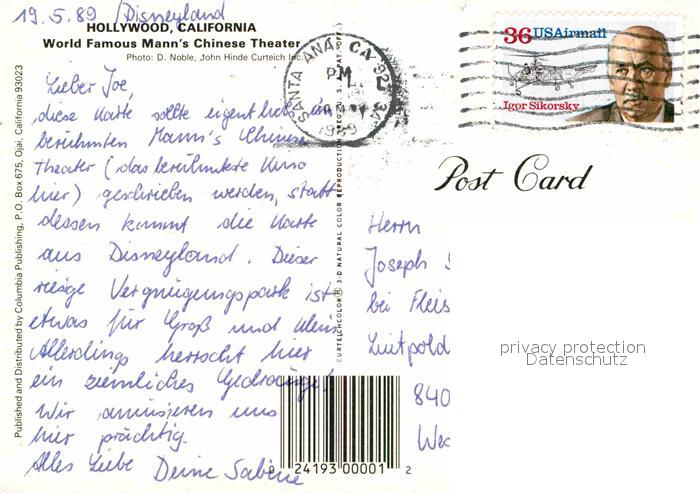 19.5.89 /Disneyland
HOLLYWOOD, CALIFORNIA
World Famous Mann's Chinese Theater
Photo: D. Noble, John Hinde Curteich Inc.
Lieber Joe,
diese Karte sollte eigentlich im
berühmten Mann's Chinese
Theater (das berühmteste Kino
hier) geschrieben werden, statt
dessen kommt die Karte
aus Disneyland. Dieser
riesige Vergnügungspark ist
etwas für Groß und Klein.
Allerdings herrscht hier
ein ziemliches Gedränge!
Wir amüsieren uns
hier prächtig.
Alles Liebe Deine Sabine
Published and Distributed by Columbia Publishing, P.O. Box 675, Ojai, California 93023
CURTEICHCOLOR® 3-D NATURAL COLOR REPRODUCTION
SANTA ANA, CA 92
PM
1989
36 USAirmail
Igor Sikorsky
Post Card
Herrn
Joseph
bei Fleis
Luitpold
840
privacy protection
Datenschutz
0 24193 00001 2